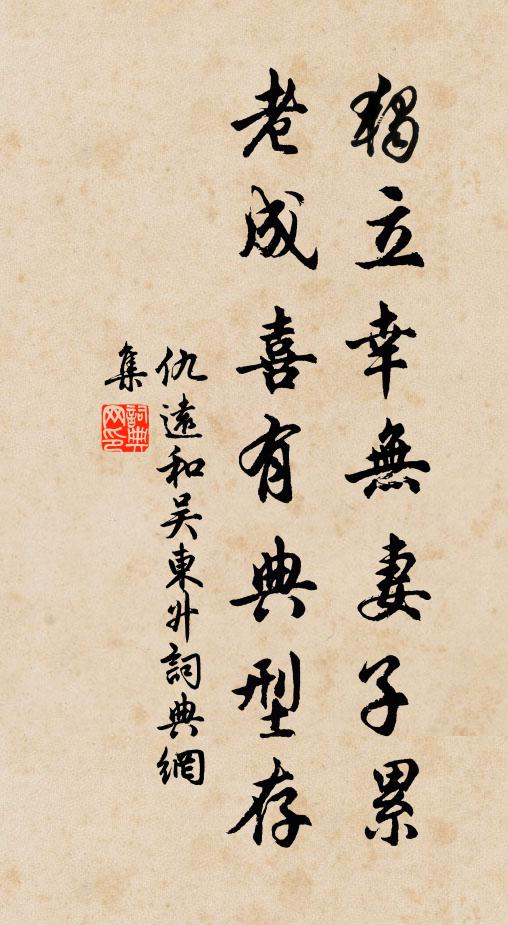 獨立幸無妻子累
老成喜有典型存
仇遠和吴東升詞典網
集
詞典网印